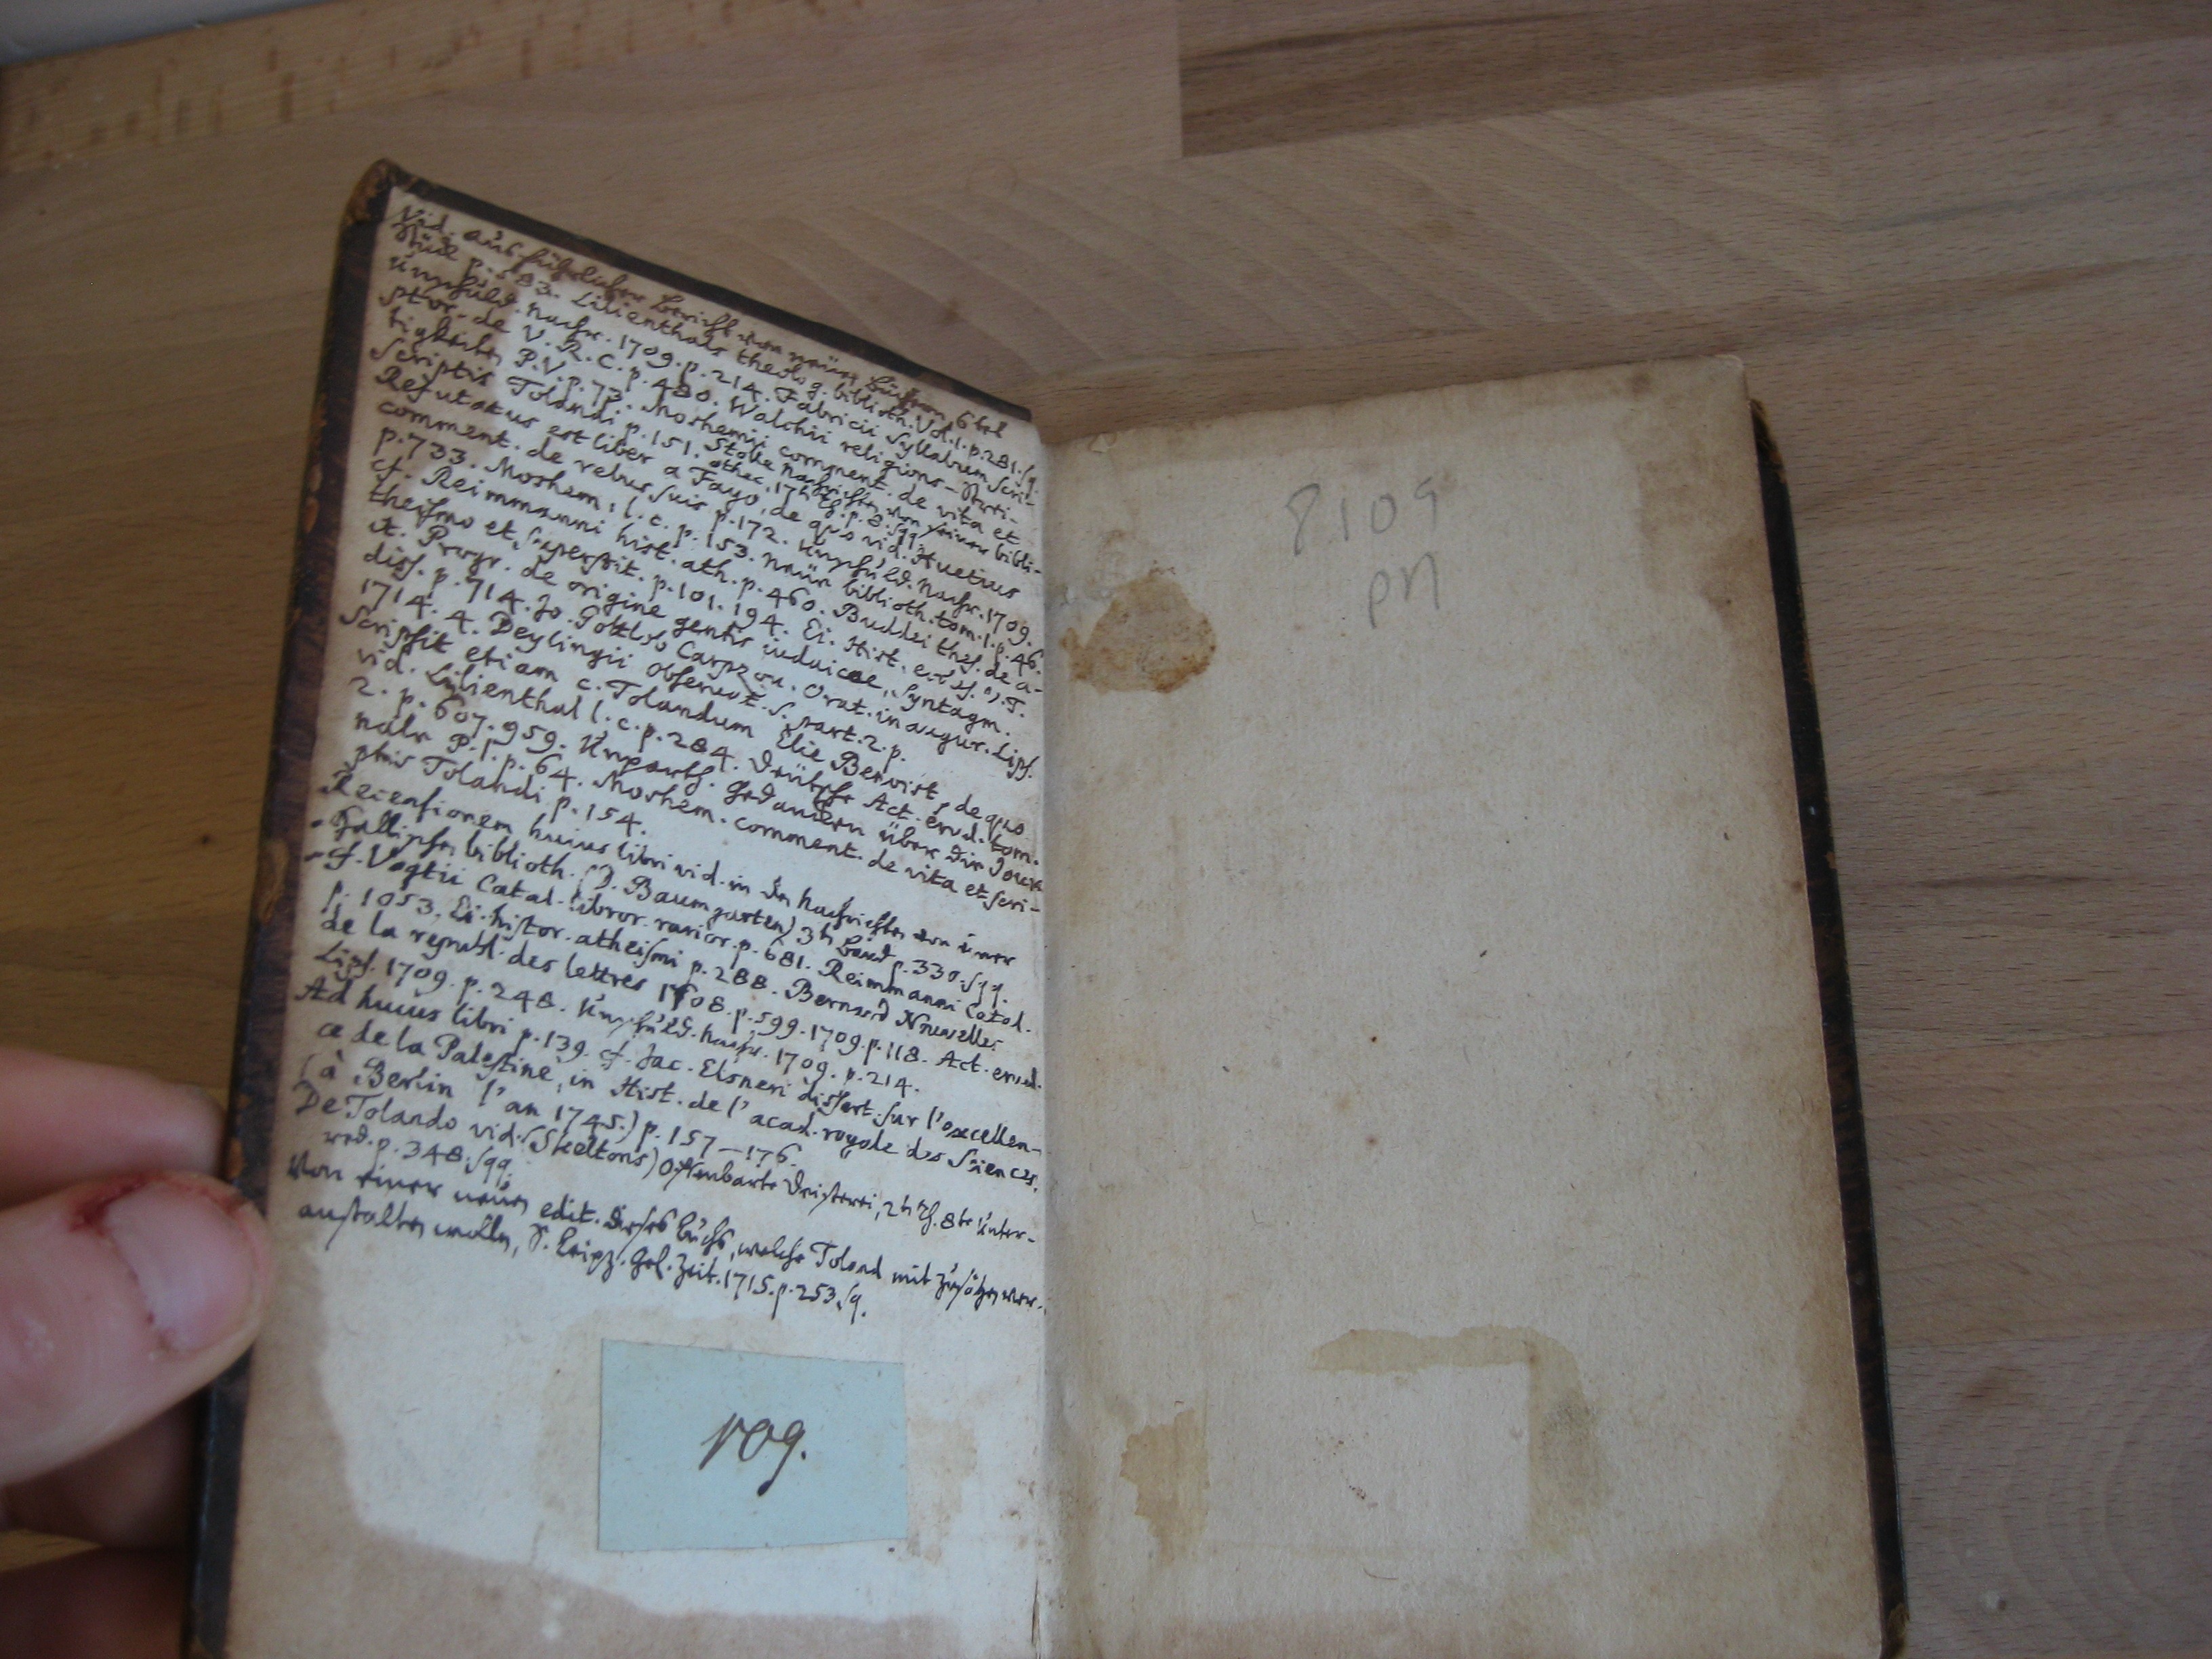 Vid. ausführlicher Bericht von neuen Büchern, 6tes
Stück p. 583. Lilienthals theolog. biblioth. Vol. 1. p. 281. sq.
Unschuld. Nachr. 1709. p. 214. Fabricii Syllabum Scri-
ptor. de V. R. C. p. 480. Walchii religions-Strei-
tigkeiten P. V. p. 73. Moshemii comment. de vita et
Scriptis Tolandi p. 151. Stolle Nachrichten von seiner bibli-
othec. 17th Th. p. 8. sqq.
Refutatus est liber a Fayo, de quo vid. Huetius
comment. de rebus suis p. 172. Unschuld. Nachr. 1709.
p. 733. Moshem. l. c. p. 153. Neue biblioth. tom. 1. p. 46.
cf. Reimmanni hist. ath. p. 460. Buddei thes. de a-
theismo et superstit. p. 101. 194. Ei. Hist. eccles. V. T.
it. Progr. de origine gentis iudaicae, Syntagm.
diss. p. 714. Jo. Gottlob Carpzou. Orat. inaugur. Lips.
1714. 4. Deylingii Obseruat. S. part. 2. p.
Scripsit etiam c. Tolandum Elie Benoist, de quo
vid. Lilienthal l. c. p. 284. Deutsche Act. erud. tom.
2. p. 607. 959. Unparth. Gedancken über die Jour-
nale P. 1. p. 64. Moshem. comment. de vita et scri-
ptis Tolandi p. 154.
Recensionem huius libri vid. in den Nachrichten von einer
Hallischen biblioth. (D. Baumgarten) 3th Band p. 330. sqq.
cf. Vogtii Catal. libror. rarior. p. 681. Reimmanni Catal.
p. 1053. Ei. histor. atheismi p. 288. Bernard Nouuelles
de la republ. des lettres 1708. p. 599. 1709. p. 118. Act. erud.
Lips. 1709. p. 248. Unschuld. Nachr. 1709. p. 214.
Ad huius libri p. 139. cf. Jac. Elsneri dissert. sur l'excellen-
ce de la Palestine, in Hist. de l'acad. royale des Sciences.
(à Berlin l'an 1745.) p. 157-176.
De Tolando vid. (Skeltons) Offenbarte Deisterei, 2th Th. 8te Unter-
red. p. 348. sqq.
Von einer neuen edit. dieses buchs, welche Toland mit Zusätzen ver-
anstalten wollen, S. Leipz. Gel. Zeit. 1715. p. 253. sq.
109.
P.109